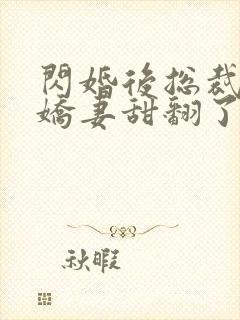 閃婚後总裁
嬌妻甜翻了
秋暇